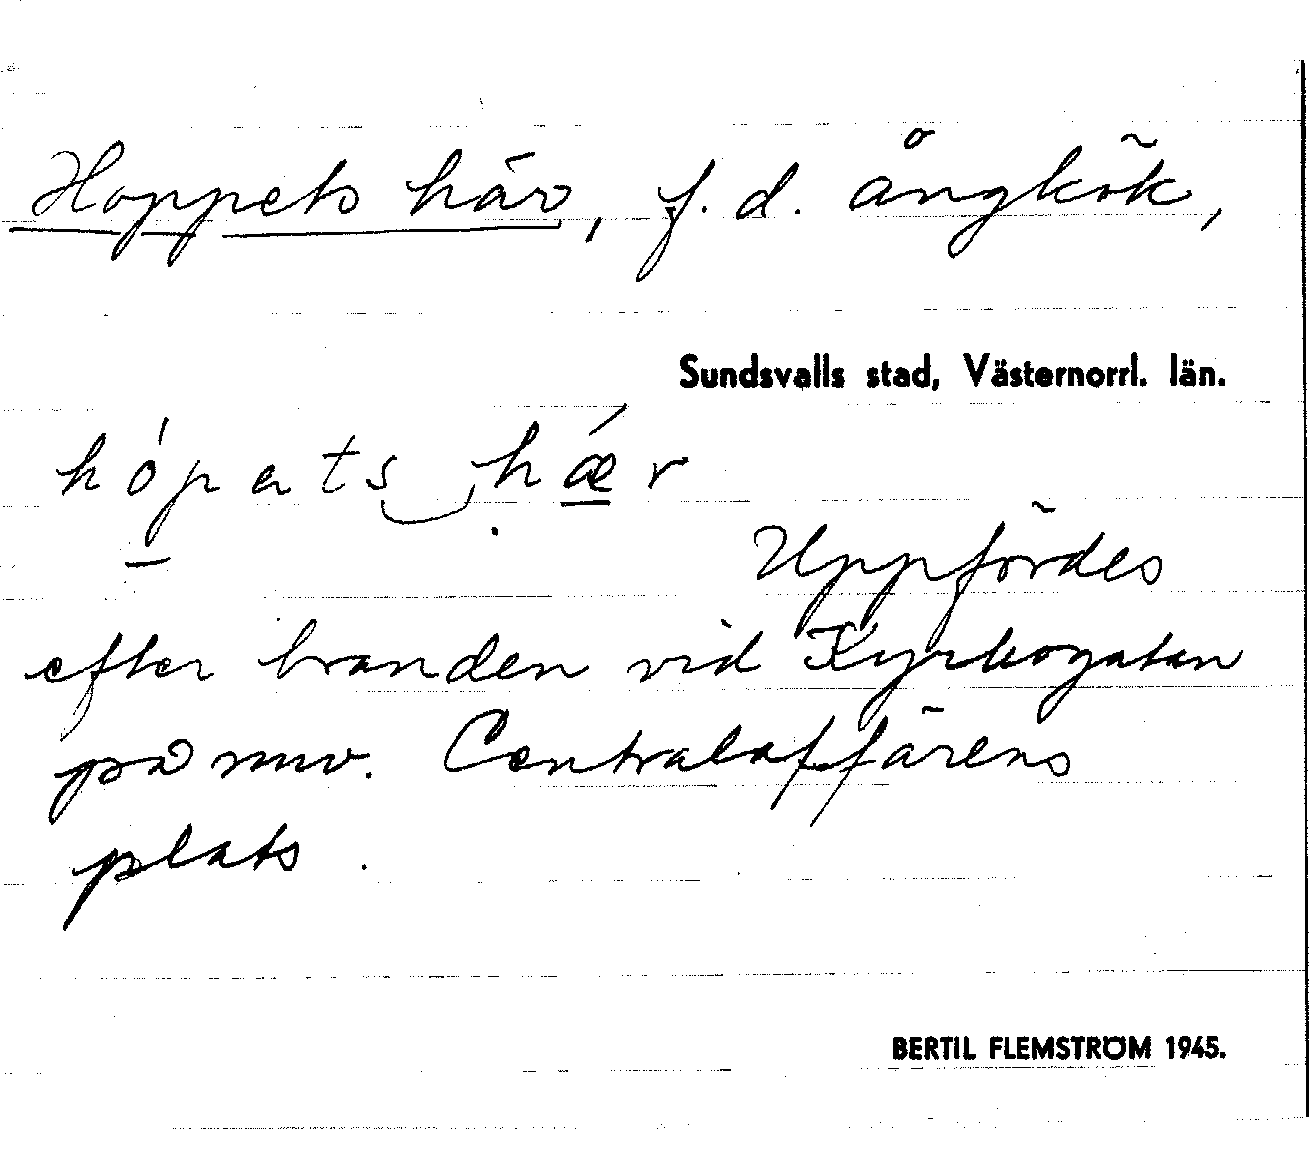 Hoppets här, f. d. ångkök,
Sundsvalls stad, Västernorrl. län.
hópats hǽr
Uppfördes
efter branden vid Kyrkogatan
på nuv. Centralaffärens
plats.
BERTIL FLEMSTRÖM 1945.